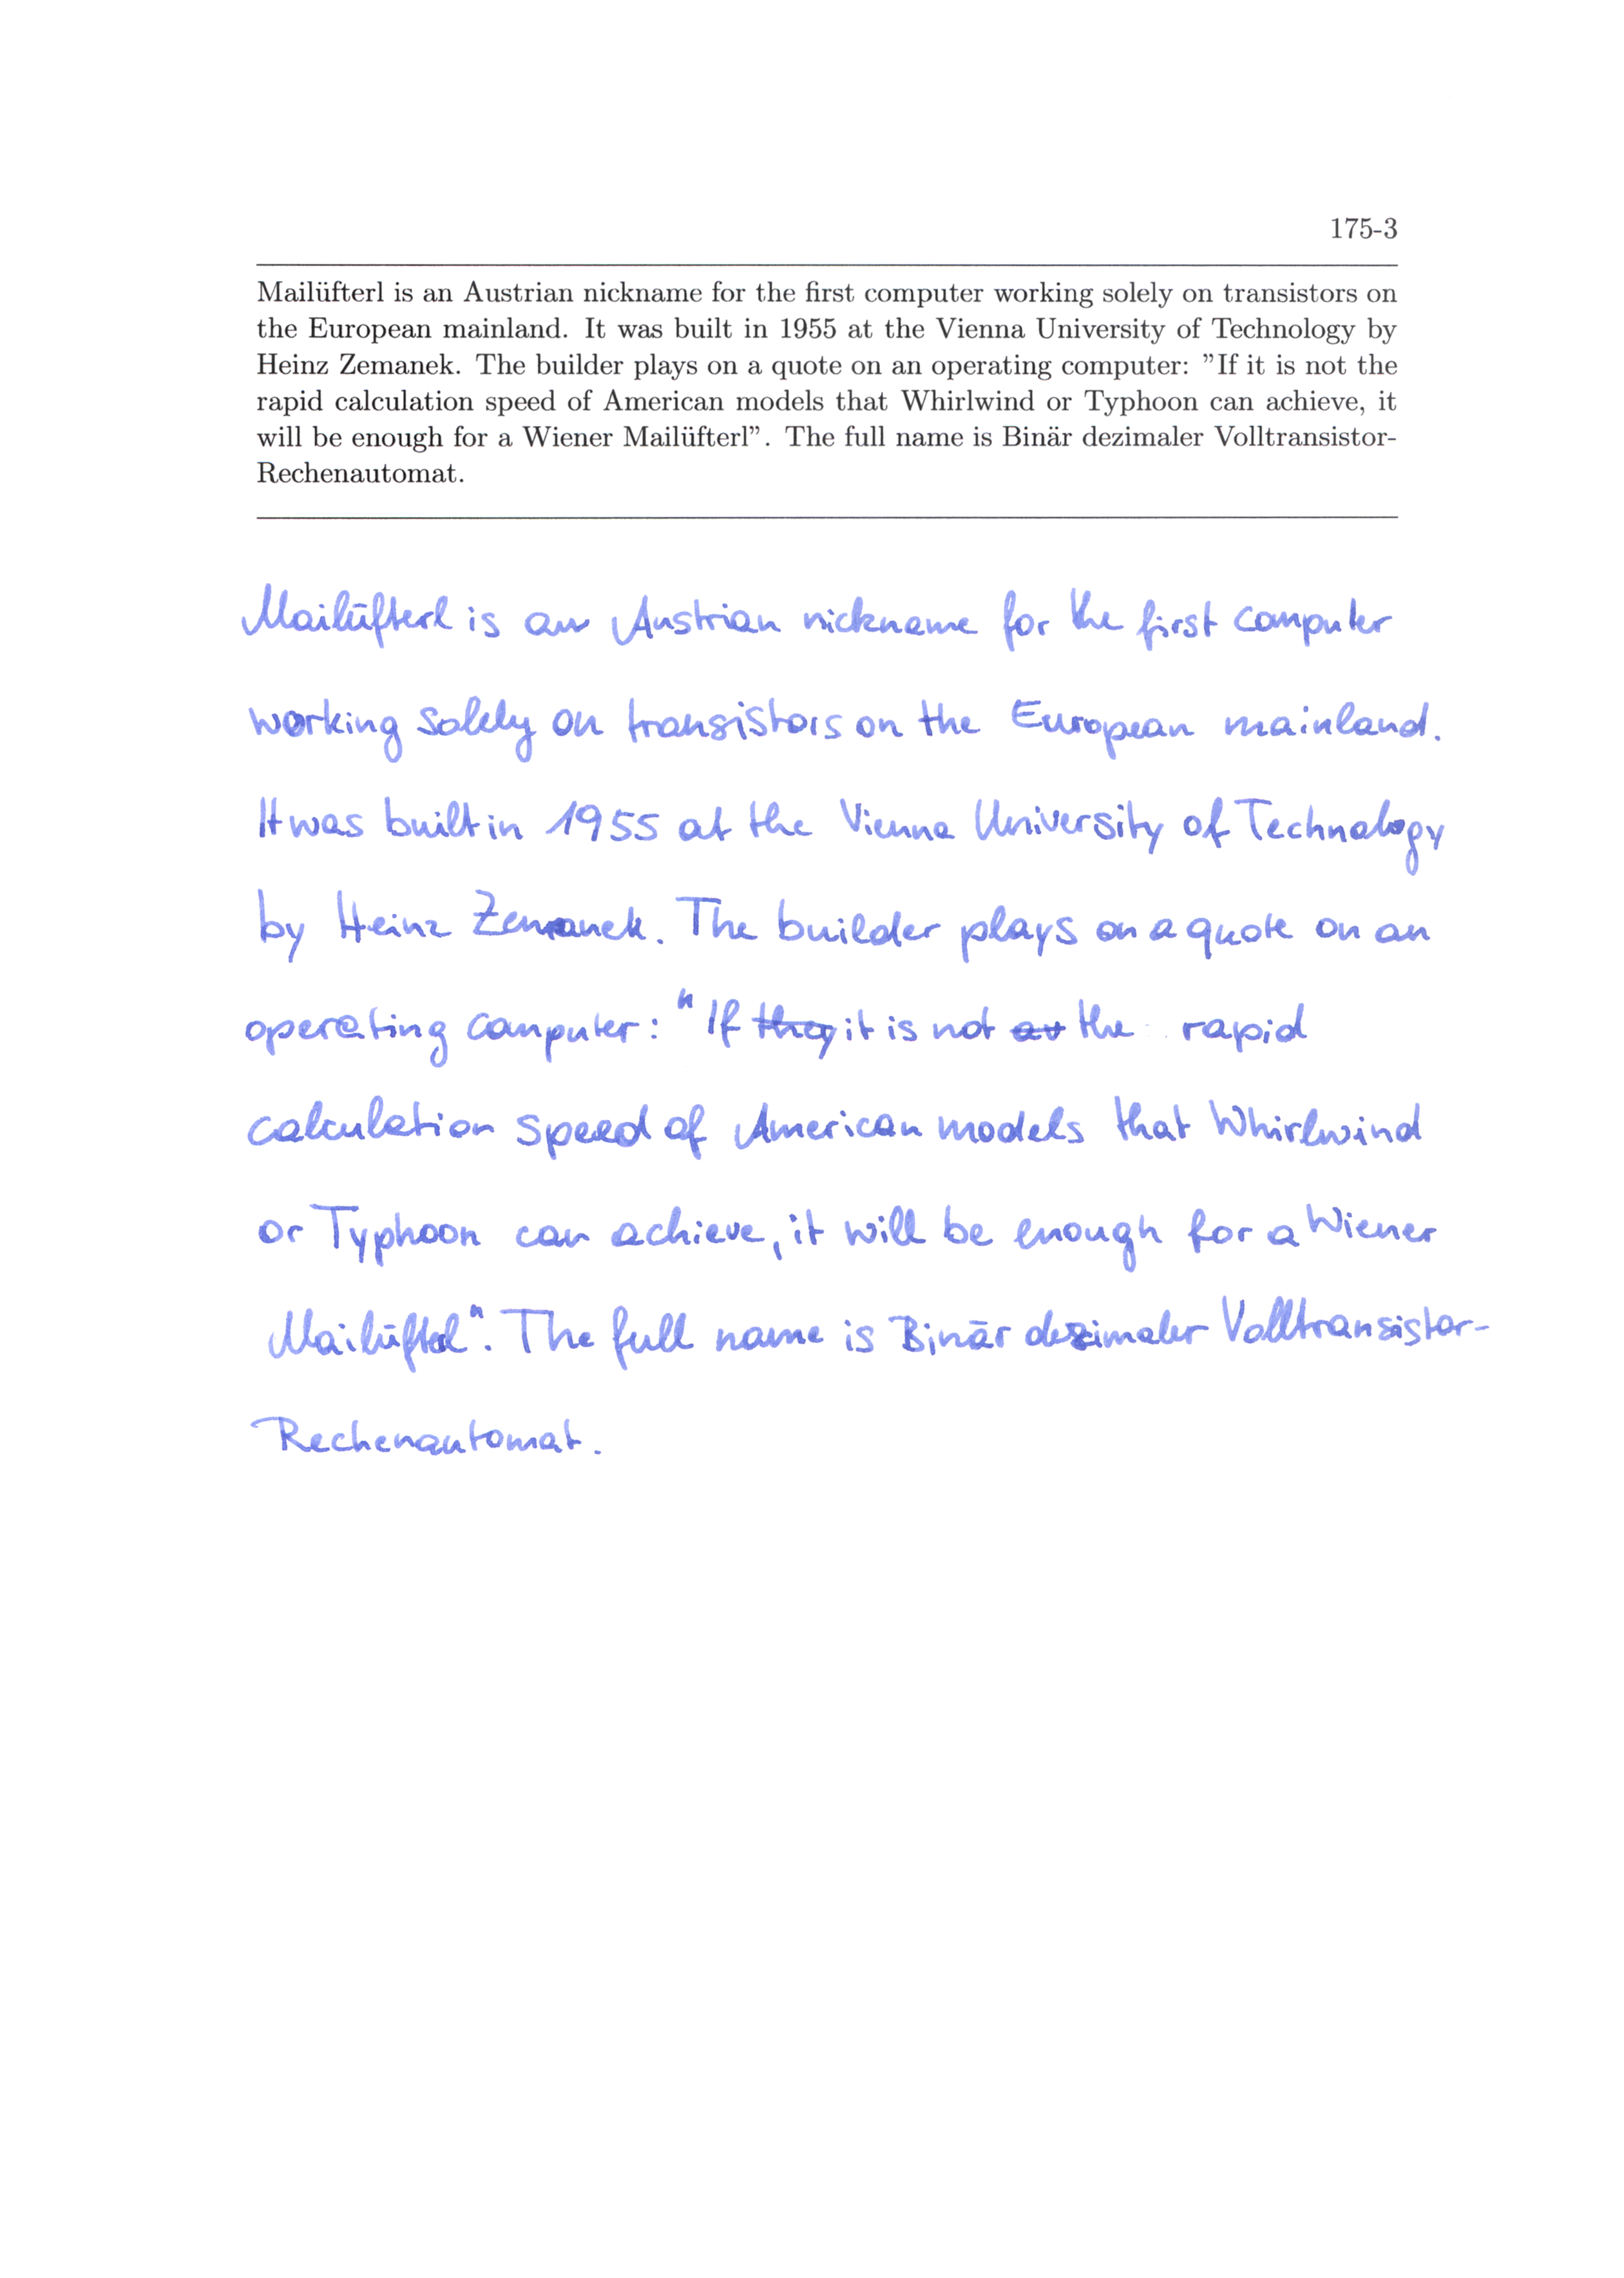 175-3
Mailüfterl is an Austrian nickname for the first computer working solely on transistors on
the European mainland. It was built in 1955 at the Vienna University of Technology by
Heinz Zemanek. The builder plays on a quote on an operating computer: ”If it is not the
rapid calculation speed of American models that Whirlwind or Typhoon can achieve, it
will be enough for a Wiener Mailüfterl”. The full name is Binär dezimaler Volltransistor-
Rechenautomat.
Mailüfterl is an Austrian nickname for the first computer
working solely on transistors on the European mainland.
It was built in 1955 at the Vienna University of Technology
by Heinz Zemanek. The builder plays on a quote on an
operating computer: "If it is not the rapid
calculation speed of American models that Whirlwind
or Typhoon can achieve, it will be enough for a Wiener
Mailüfterl". The full name is Binär dezimaler Volltransistor-
Rechenautomat.